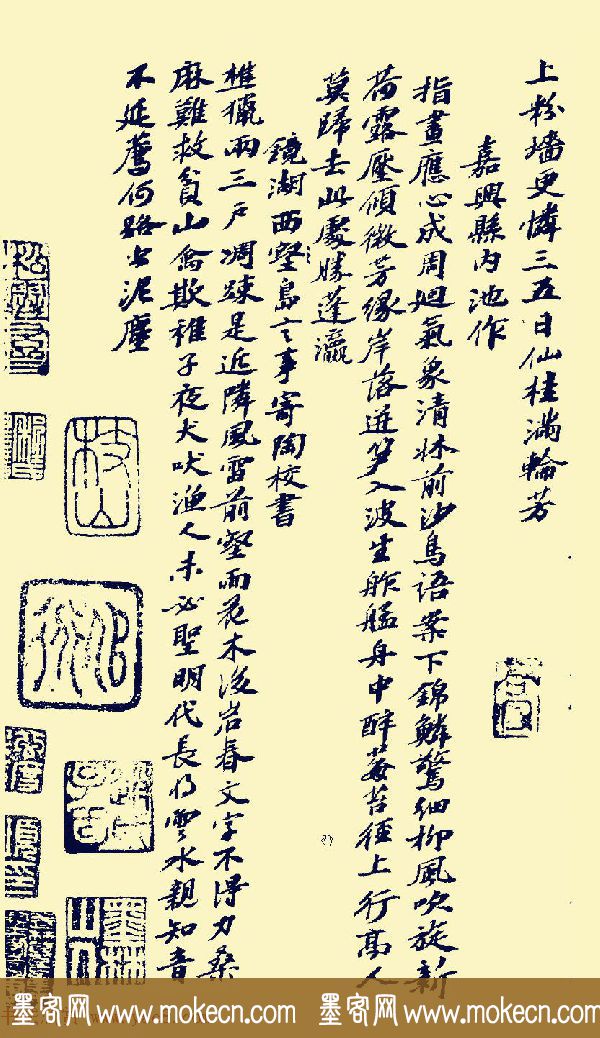 上粉墻更憐三五日仙桂滿輪芳
嘉興縣內池作
指畫應心成周迴氣象清牀前沙鳥語案下錦鱗驚細柳風吹旋新
荷露壓傾微芳緣岸落迸笋入波生舴艋舟中醉莓苔徑上行高人
莫歸去此處勝蓬瀛
鏡湖西島言事寄陶校書
樵獵兩三戶凋踈是近隣風雷前壑雨花木後岩春文字不得力桑
麻難救貧山禽欺稚子夜犬吠漁人未必聖明代長將雲水親知音
不延薦何路出泥塵
墨客网www.mokecn.com 墨客网www.mokecn.com